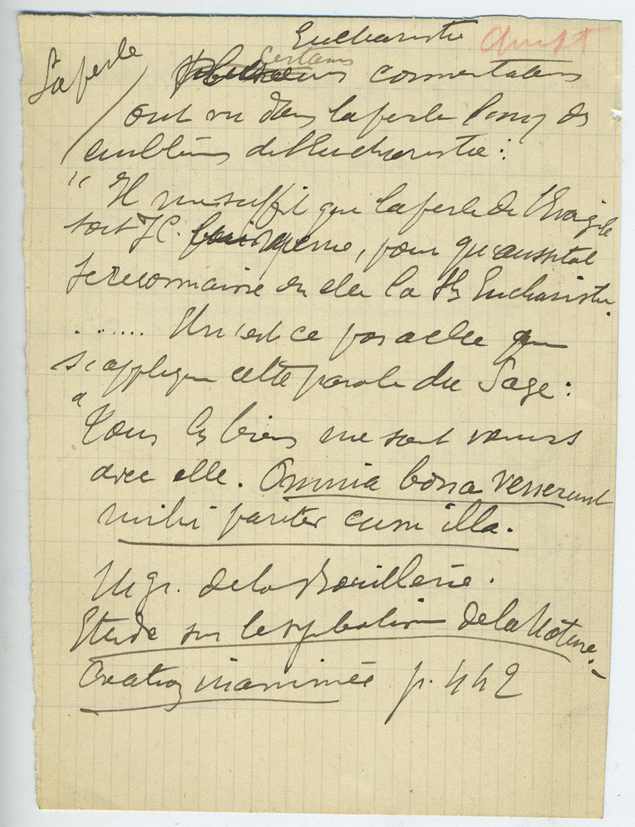 Eucharistie Christ
La perle
Certains
Plusieurs commentateurs
ont vu dans la perle l'un des
emblèmes de l'Eucharistie :
" Il me suffit que la perle de l'Evangile
soit J.C. lui-même, pour qu'aussitôt
je reconnaisse en elle la Ste Eucharistie.
...... N'est ce pas à elle que
s'applique cette parole du Sage :
" Tous les biens me sont venus
avec elle. Omnia bona venerunt
mihi pariter cum illa.
Mgr. de la Bouillerie.
Etude sur le symbolisme de la Nature.-
Création inanimée p. 442